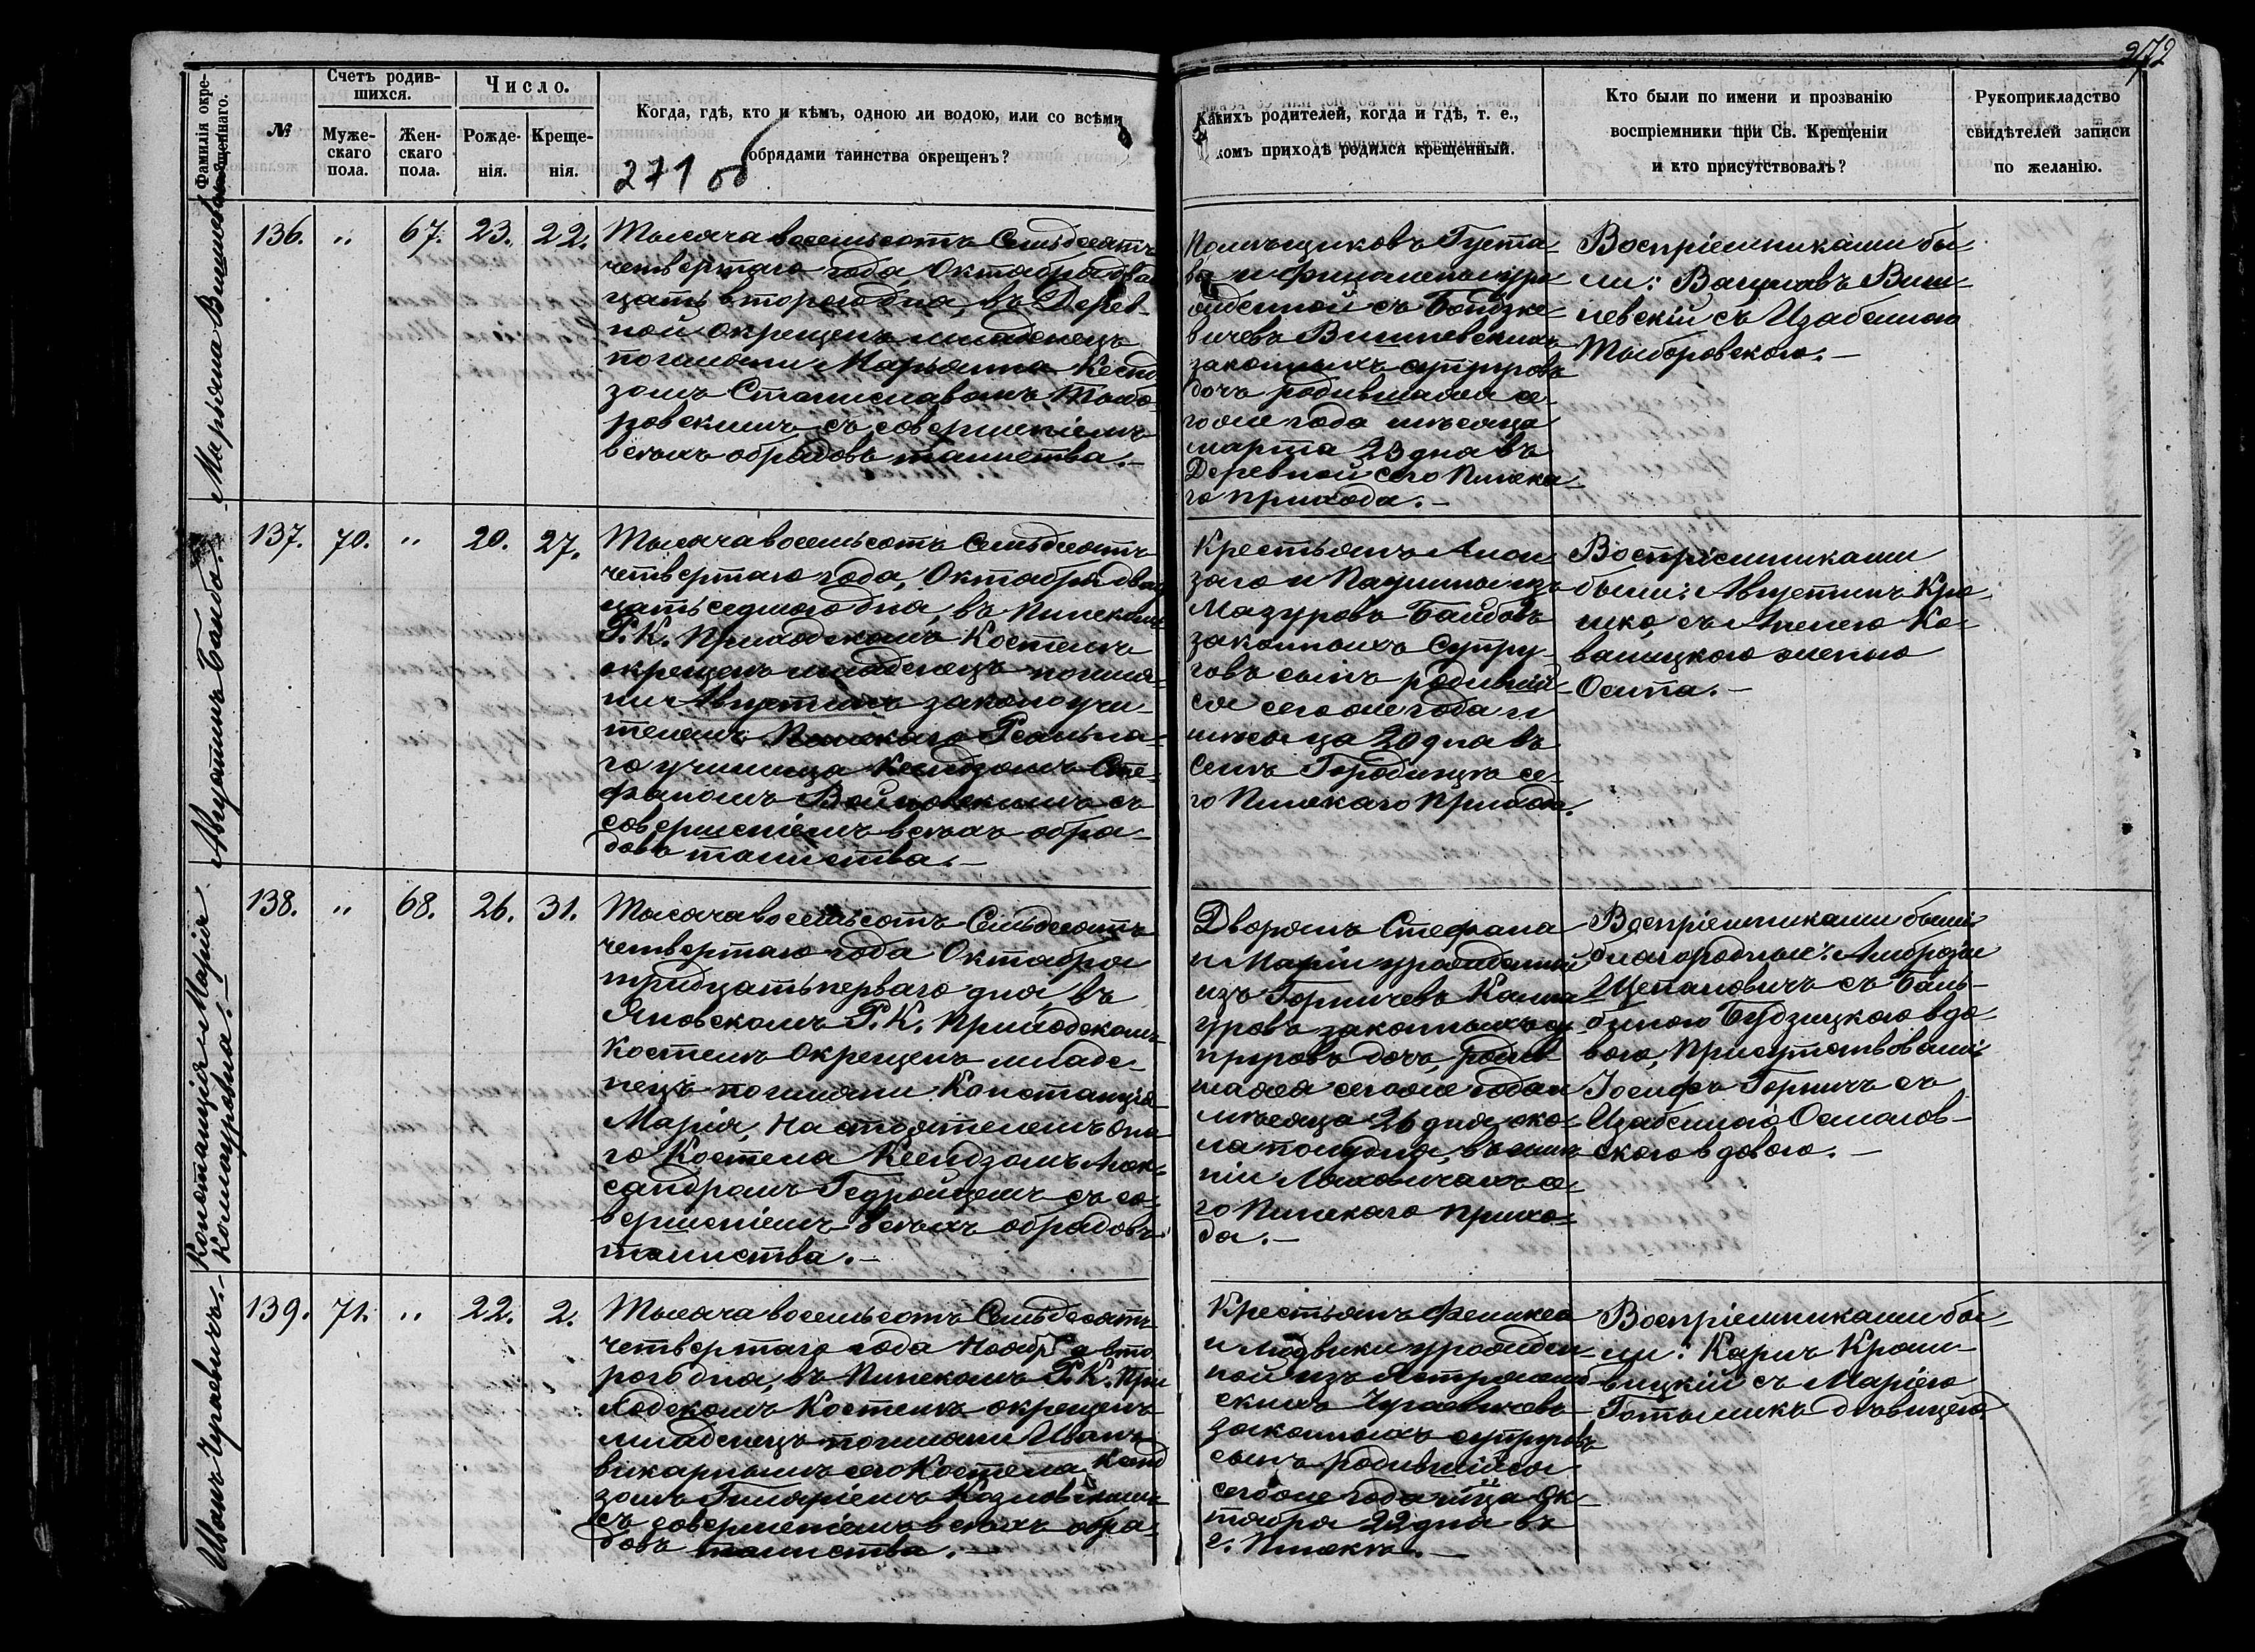 272
Фамилія окре-
щеннаго.
№
Счетъ родив-
шихся.
Муже-
скаго
пола.
Жен-
скаго
пола.
Число.
Рожде-
нія.
Креще-
нія.
Когда, гдѣ, кто и кѣмъ, одною ли водою, или со всѣми
обрядами таинства окрещенъ?
271 об
Какихъ родителей, когда и гдѣ, т. е.,
комъ приходѣ родился крещенный.
Кто были по имени и прозванію
воспріемники при Св. Крещеніи
и кто присутствовалъ?
Рукоприкладство
свидѣтелей записи
по желанію.
Марьяна
136. " 67. 23. 22.
Тысяча восемьсотъ Семьдесятъ
четвертаго года Октября два
цать втораго дня, въ Дерев-
ной окрещенъ младенецъ
по имени Марьянна Ксенд
зомъ Станиславомъ Тыбо-
ровскимъ съ совершеніемъ
всѣхъ обрядовъ таинства.–
Помѣщиковъ Густа-
ва и Филомены уро
жденной съ
вичевъ Вишневскихъ
законныхъ супруговъ
дочь родившаяся се-
гоже года мѣсяца
марта 23 дня въ
Деревной сего Пинска-
го прихода.–
Воспріемниками бы-
ли: Вацлавъ Виш-
невскій съ Изабеллою
Тыборовскою.–
Августинъ Байда.–
137. 70. " 20. 27.
Тысяча восемьсотъ Семьдесятъ
четвертаго года, Октября двад
цать седмаго дня, въ Пинскомъ
Р. К. Приходскомъ Костелѣ
окрещенъ младенецъ по име-
ни Августинъ законоучи-
телемъ Пинскаго Реальна-
го училища Ксендзомъ Сте-
фаномъ Войновскимъ съ
совершеніемъ всѣхъ обря-
довъ таинства.–
Крестьянъ Алои
заго и Паулины изъ
Мазуровъ Байдовъ
законныхъ Супру-
говъ сынъ родивший-
ся сегоже года и
мѣсяца 20 дня въ
селѣ Городищѣ се-
го Пинскаго Прихода.
Воспріемниками
были: Августинъ Кра-
шко, съ Анелею Ко-
валицкою женою
Осипа.–
Констанція Марія
138. " 68. 26. 31.
Тысяча восемьсотъ Семьдесятъ
четвертаго года Октября
тридцать перваго дня, въ
Яновскомъ Р. К. Приходскомъ
Костелѣ Окрещенъ младе-
нецъ по имени Констанція
Марія, Настоятелемъ она-
го Костела Ксендзомъ Алек-
сандромъ Гедройцемъ съ со-
вершеніемъ всѣхъ обрядовъ
таинства.–
Дворянъ Стефана
и Маріи урожденной
изъ Горничевъ
законныхъ су-
пруговъ дочь, родив-
шаяся сегоже года и
мѣсяца 26 дня, око-
ла полудня, въ имѣ
ніи Ляховичахъ се-
го Пинскаго прихо-
да.–
Воспріемниками были:
благородные: Амброзій
Щепановичъ съ Баль-
биною Будзицкою вдо
вою, Присутствовали:
Іосифъ Горничъ съ
Изабеллою Осмолов-
скою вдовою.–
139. 71. " 22. 2.
Тысяча восемьсотъ Семьдесятъ
четвертаго года Ноября вто
раго дня, въ Пинскомъ Р. К. При
ходскомъ Костелѣ окрещенъ
младенецъ по имени Иванъ
викарнымъ сего Костела Ксенд
зомъ Гиляріемъ Козловскимъ
съ совершеніемъ всѣхъ обря-
довъ таинства.–
Крестьянъ Феликса
и Людвики урожден-
ной изъ
законныхъ супруговъ
сынъ родившійся
сегоже года м-ца Ок-
тября 22 дня въ
г. Пинскѣ.–
Воспріемниками бы-
ли: Карлъ
съ Маріею
дѣвицею